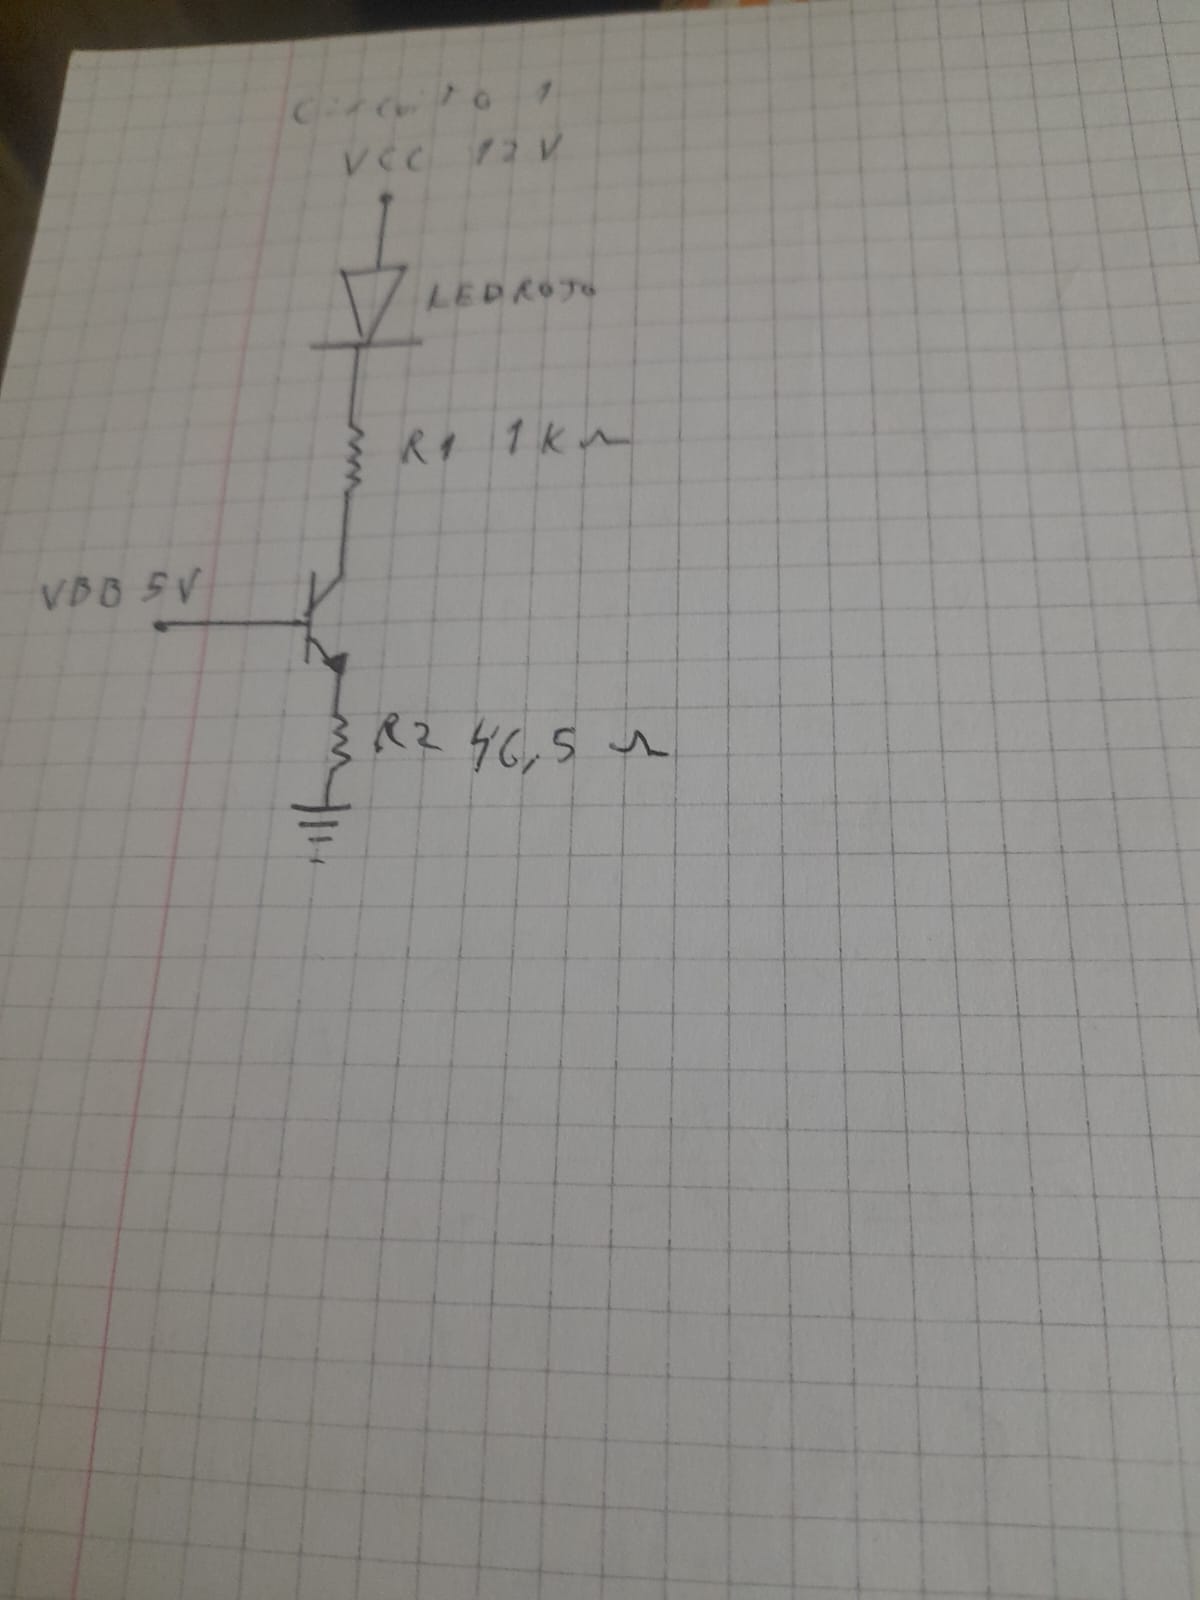 Circuito 1
VCC 12 V
LED ROJO
R1 1K Ω
VBB 5V
R2 46,5 Ω